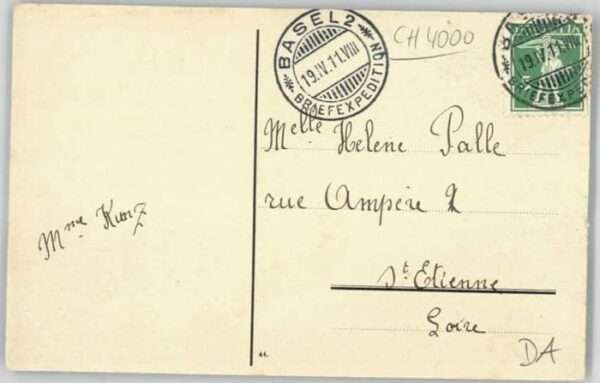 BASEL 2
19.IV.11.VIII
BRIEFEXPEDITION
CH 4000
19.IV.11.VIII
BRIEFEXPED
Melle Helene Palle
rue Ampère 2
St. Etienne
Loire
Mme Kunz
DA